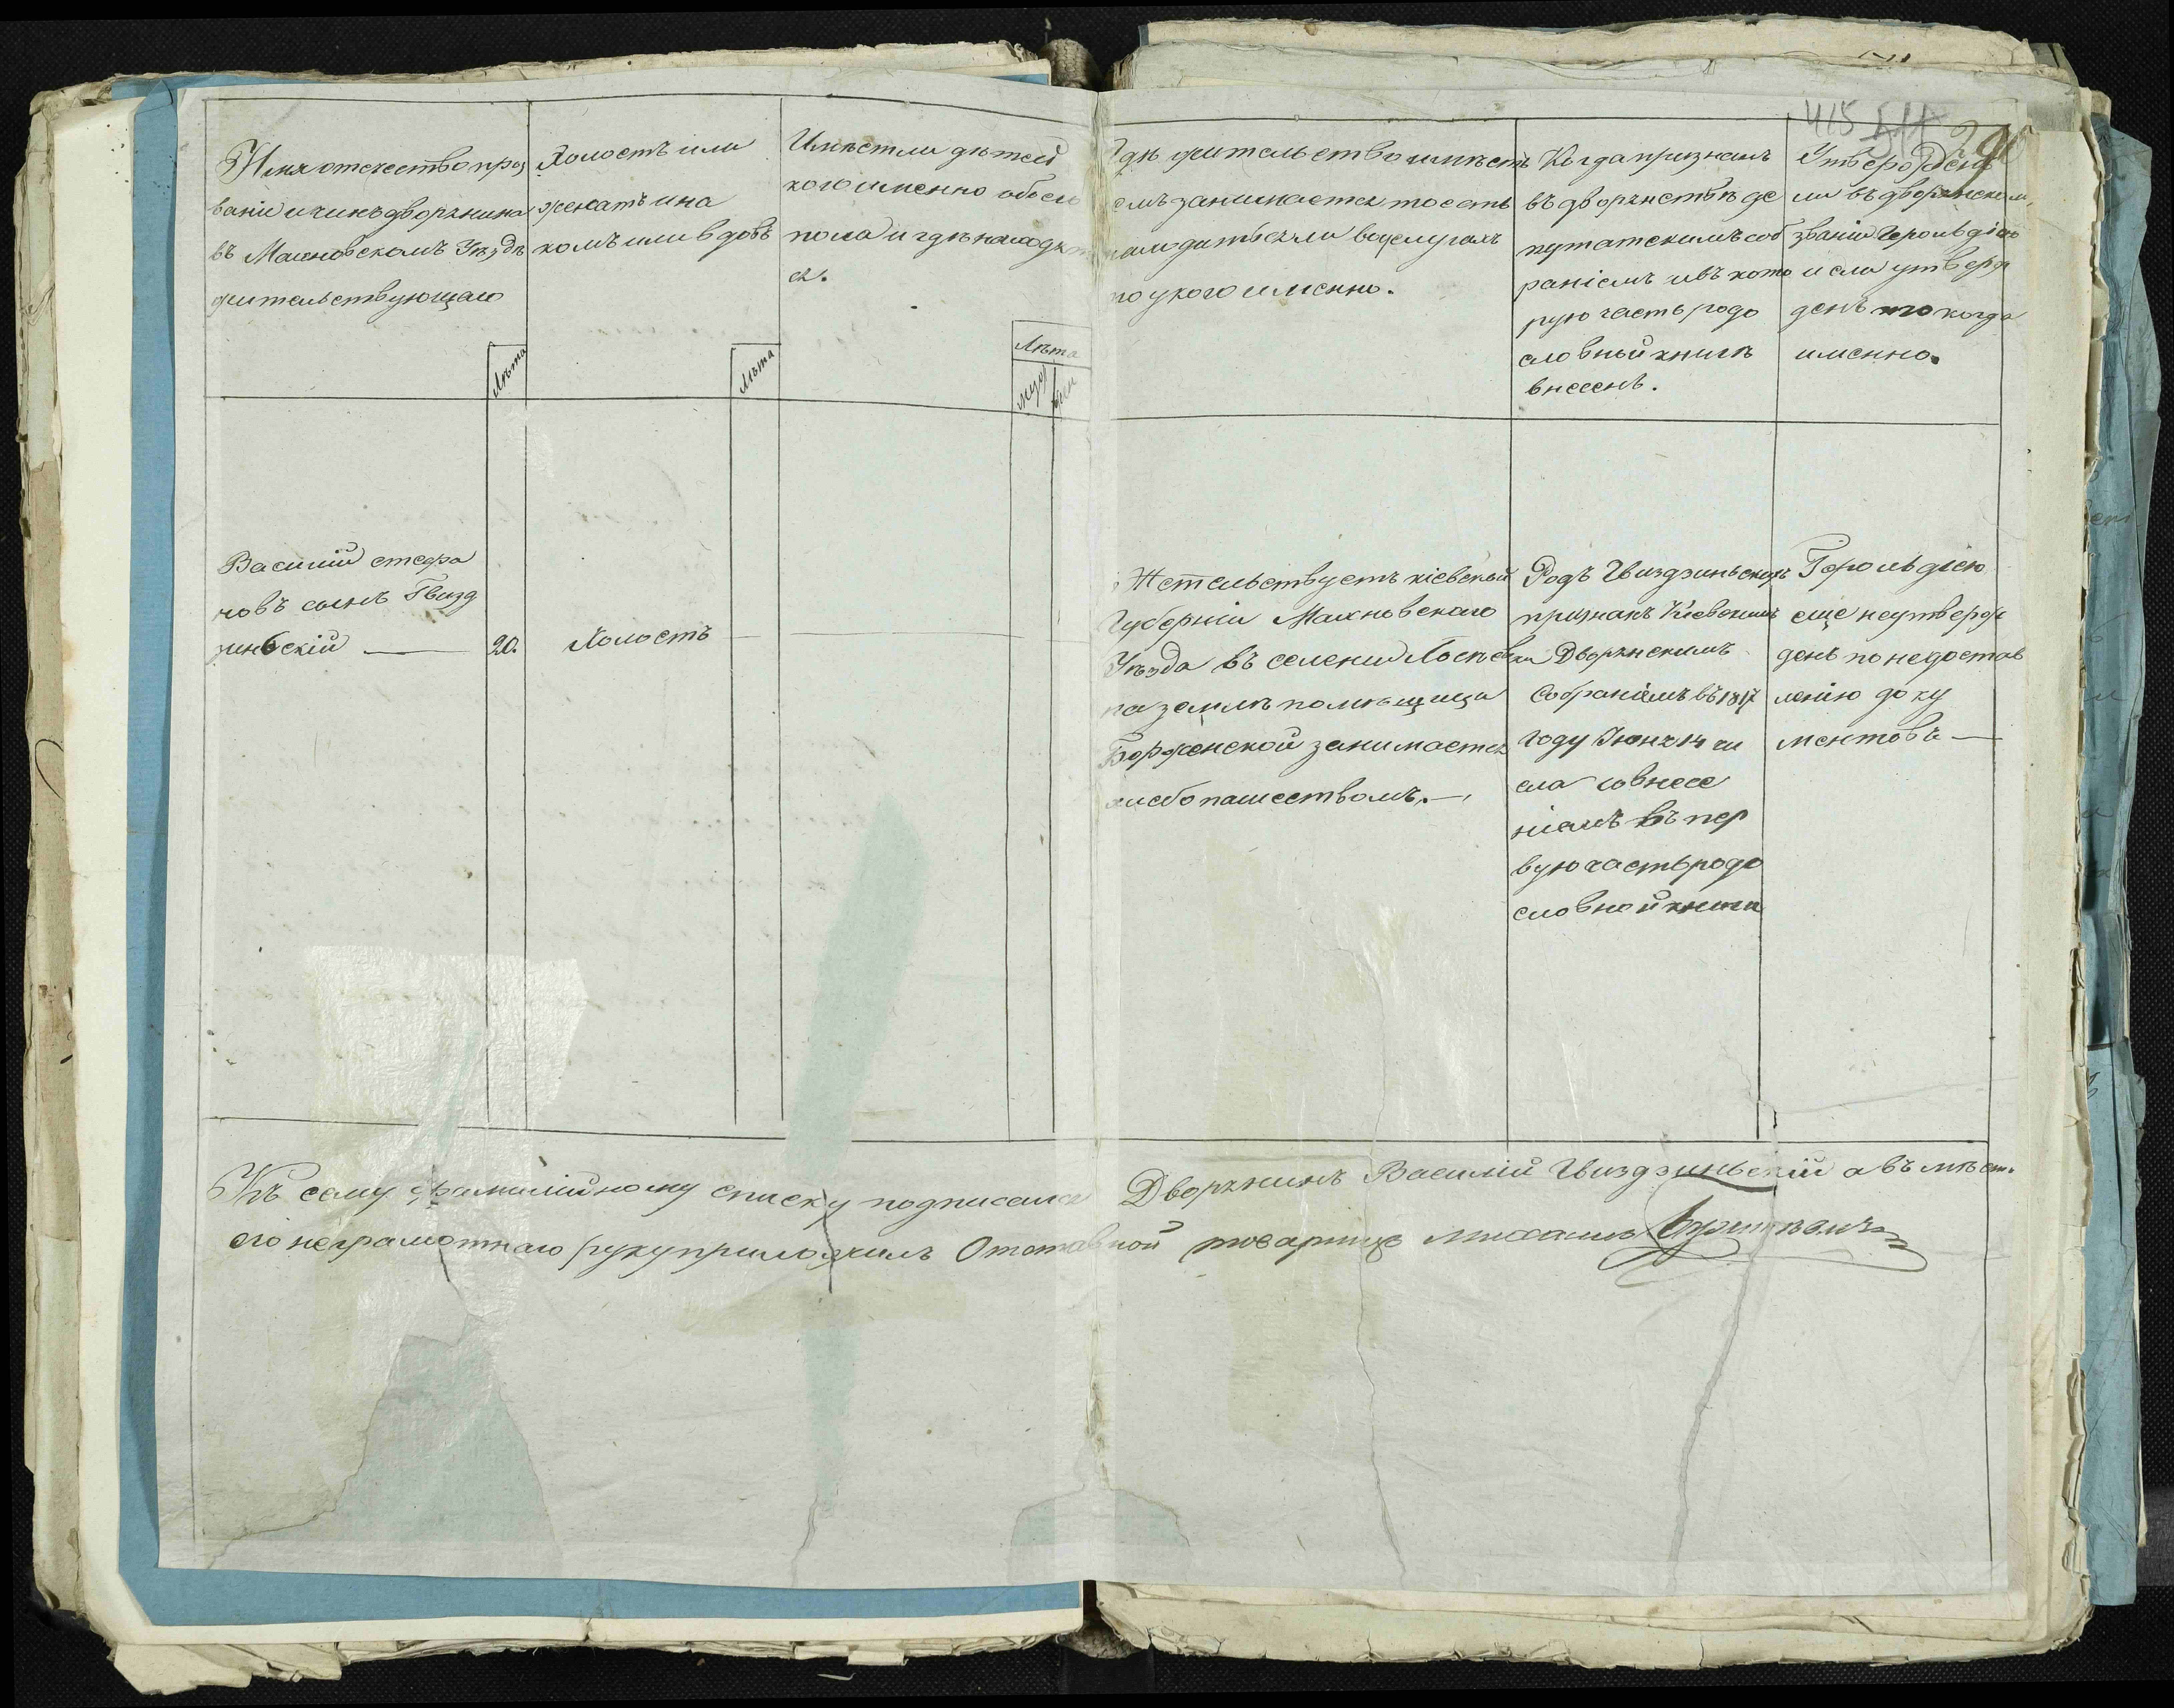 415 511 290
Имя отечество проз
ваніи и чинъ дворянина
въ Махновскомъ Уѣздѣ
жительствующаго
Лѣта
Холостъ или
женатъ и на
комъ или вдовъ
Лѣта
Имѣетли дѣтей
кого именно обоего
пола и гдѣ находят
ся.
Лѣта
муж
жен
Гдѣ жительство имѣетъ
чемъ занимается тоесть
находитьсяли вуслугахъ
то укого именно.
Когда признанъ
въ дворянствѣ де
путатскимъ соб
раніемъ ивъ кото
рую часть родо
словный книгъ
внесенъ.
Утвержденъ
ли въ дворянскомъ
званіи Герольдіею
и если утверж
денъ то когда
именно.
Василий стефа
новъ сынъ Гвизд
зинскій — 20.
Холостъ
Жетельствуетъ кіевской
Губерніи Махновскаго
Уѣзда въ селении
на землѣ помѣщица
занимается
хлебопашеством. —
Родъ Гвиздзинскихъ
признанъ Кіевскимъ
Дворянскимъ
Собраніемъ въ 1817
году Июня 14 чи
сла совнесе
ніемъ въ пер
вую часть родо
словной книги
Герольдіею
еще неутверж
денъ по недостав
ленію доку
ментовъ —
Къ сему фамилійному списку подписался Дворянинъ Василій Гвиздзинскій а въ мѣст
его неграмотнаго руку приложилъ Отставной товарищъ